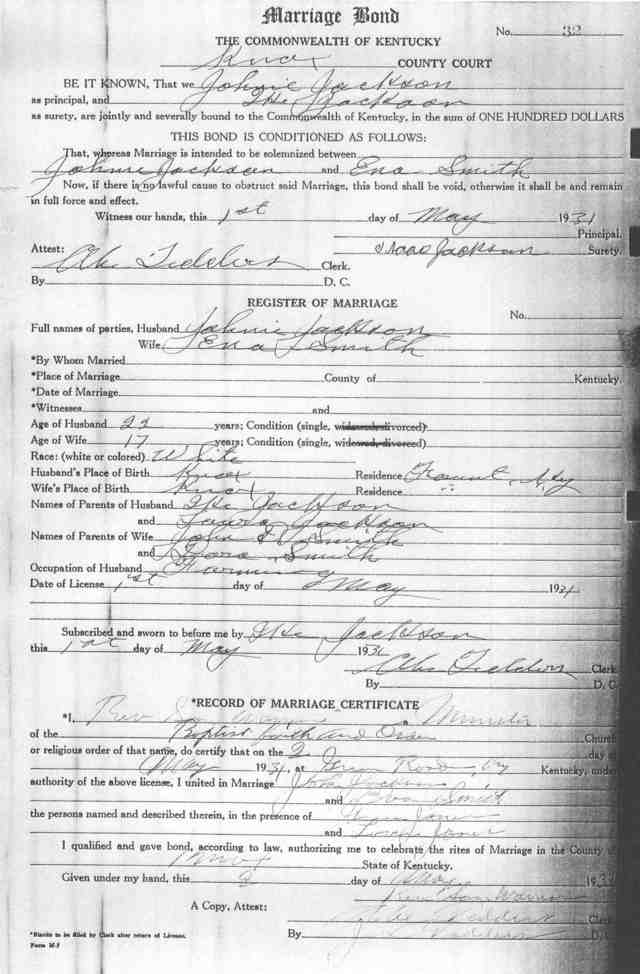 Marriage Bond
No. 32
THE COMMONWEALTH OF KENTUCKY
Knox COUNTY COURT
BE IT KNOWN, That we Johnie Jackson
as principal, and Ike Jackson
as surety, are jointly and severally bound to the Commonwealth of Kentucky, in the sum of ONE HUNDRED DOLLARS
THIS BOND IS CONDITIONED AS FOLLOWS:
That, whereas Marriage is intended to be solemnized between
Johnie Jackson and Ena Smith
Now, if there is no lawful cause to obstruct said Marriage, this bond shall be void, otherwise it shall be and remain
in full force and effect.
Witness our hands, this 1st day of May 1931
Principal.
Attest: Jackson Surety.
Clerk.
By D. C.
REGISTER OF MARRIAGE
No.
Full names of parties, Husband Johnie Jackson
Wife Ena Smith
*By Whom Married
*Place of Marriage County of Kentucky.
*Date of Marriage
*Witnesses and
Age of Husband 22 years; Condition (single, widowed, divorced)
Age of Wife 17 years; Condition (single, widowed, divorced)
Race: (white or colored) White
Husband's Place of Birth Knox Residence Ky
Wife's Place of Birth Knox Residence "
Names of Parents of Husband Ike Jackson
and Laura Jackson
Names of Parents of Wife John Smith
and Smith
Occupation of Husband Farming
Date of License 1st day of May 1931
Subscribed and sworn to before me by Ike Jackson
this 1st day of May 1931
Clerk
By D. C.
*RECORD OF MARRIAGE CERTIFICATE
*I, Rev a Minister
of the Baptist Faith and Order Church
or religious order of that name, do certify that on the 2 day of
May 1931, at Road, Ky Kentucky, under
authority of the above license, I united in Marriage Jackson
and Smith
the persons named and described therein, in the presence of
and
I qualified and gave bond, according to law, authorizing me to celebrate the rites of Marriage in the County of
Knox State of Kentucky.
Given under my hand, this 2 day of May 193
A Copy, Attest:
Clerk
By D
*Blanks to be filled by Clerk after return of License.
Form M-3